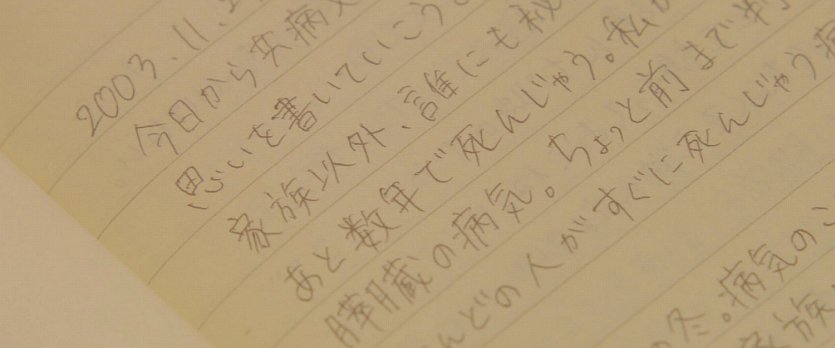 2003.11.
今日から共病
思いを書いていこう
家族以外、誰にも秘
あと数年で死んじゃう。私
膵臓の病気。ちょっと前まで
んどの人がすぐに死んじゃう病
の冬。病気の
家族